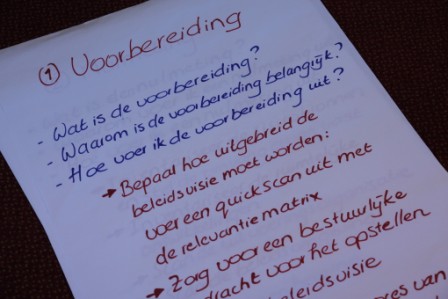 ① Voorbereiding
- Wat is de voorbereiding?
- Waarom is de voorbereiding belangrijk?
- Hoe voer ik de voorbereiding uit?
→ Bepaal hoe uitgebreid de
beleidsvisie moet worden:
voer een quickscan uit met
de relevantiematrix
→ Zorg voor een bestuurlijke
dracht voor het opstellen
beleidsvisie
van